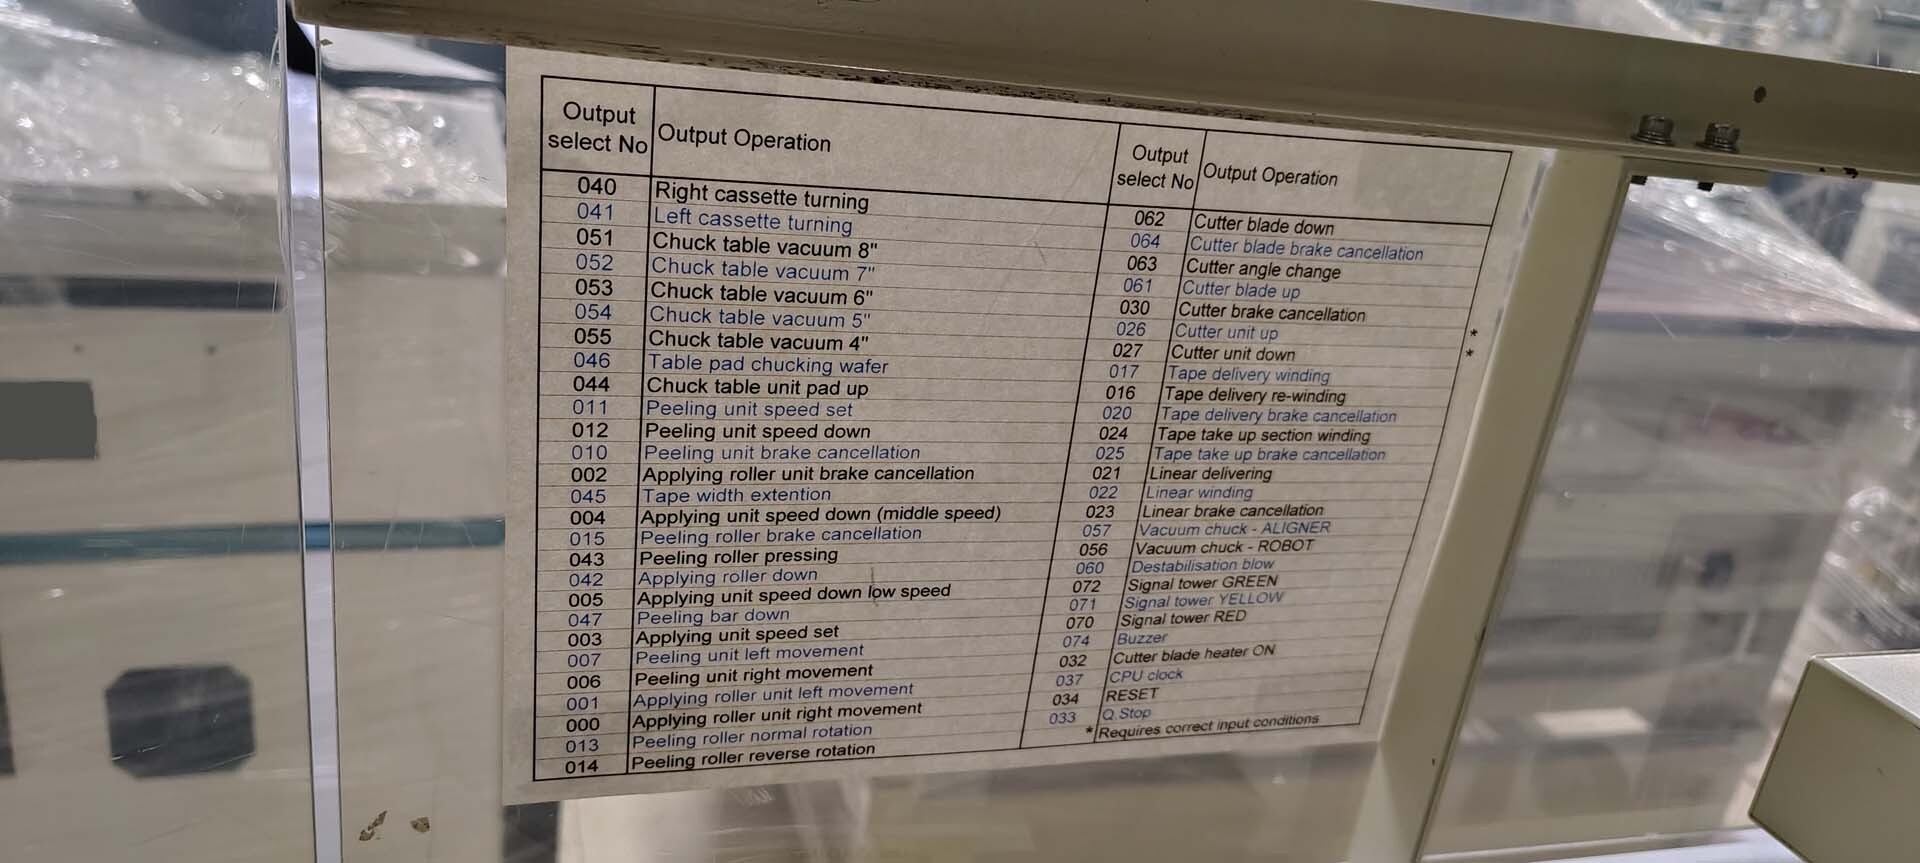 Output select No Output Operation
040 Right cassette turning
041 Left cassette turning
051 Chuck table vacuum 8"
052 Chuck table vacuum 7"
053 Chuck table vacuum 6"
054 Chuck table vacuum 5"
055 Chuck table vacuum 4"
046 Table pad chucking wafer
044 Chuck table unit pad up
011 Peeling unit speed set
012 Peeling unit speed down
010 Peeling unit brake cancellation
002 Applying roller unit brake cancellation
045 Tape width extention
004 Applying unit speed down (middle speed)
015 Peeling roller brake cancellation
043 Peeling roller pressing
042 Applying roller down
005 Applying unit speed down low speed
047 Peeling bar down
003 Applying unit speed set
007 Peeling unit left movement
006 Peeling unit right movement
001 Applying roller unit left movement
000 Applying roller unit right movement
013 Peeling roller normal rotation
014 Peeling roller reverse rotation
Output select No Output Operation
062 Cutter blade down
064 Cutter blade brake cancellation
063 Cutter angle change
061 Cutter blade up
030 Cutter brake cancellation
026 Cutter unit up *
027 Cutter unit down *
017 Tape delivery winding
016 Tape delivery re-winding
020 Tape delivery brake cancellation
024 Tape take up section winding
025 Tape take up brake cancellation
021 Linear delivering
022 Linear winding
023 Linear brake cancellation
057 Vacuum chuck - ALIGNER
056 Vacuum chuck - ROBOT
060 Destabilisation blow
072 Signal tower GREEN
071 Signal tower YELLOW
070 Signal tower RED
074 Buzzer
032 Cutter blade heater ON
037 CPU clock
034 RESET
033 Q.Stop
* Requires correct input conditions